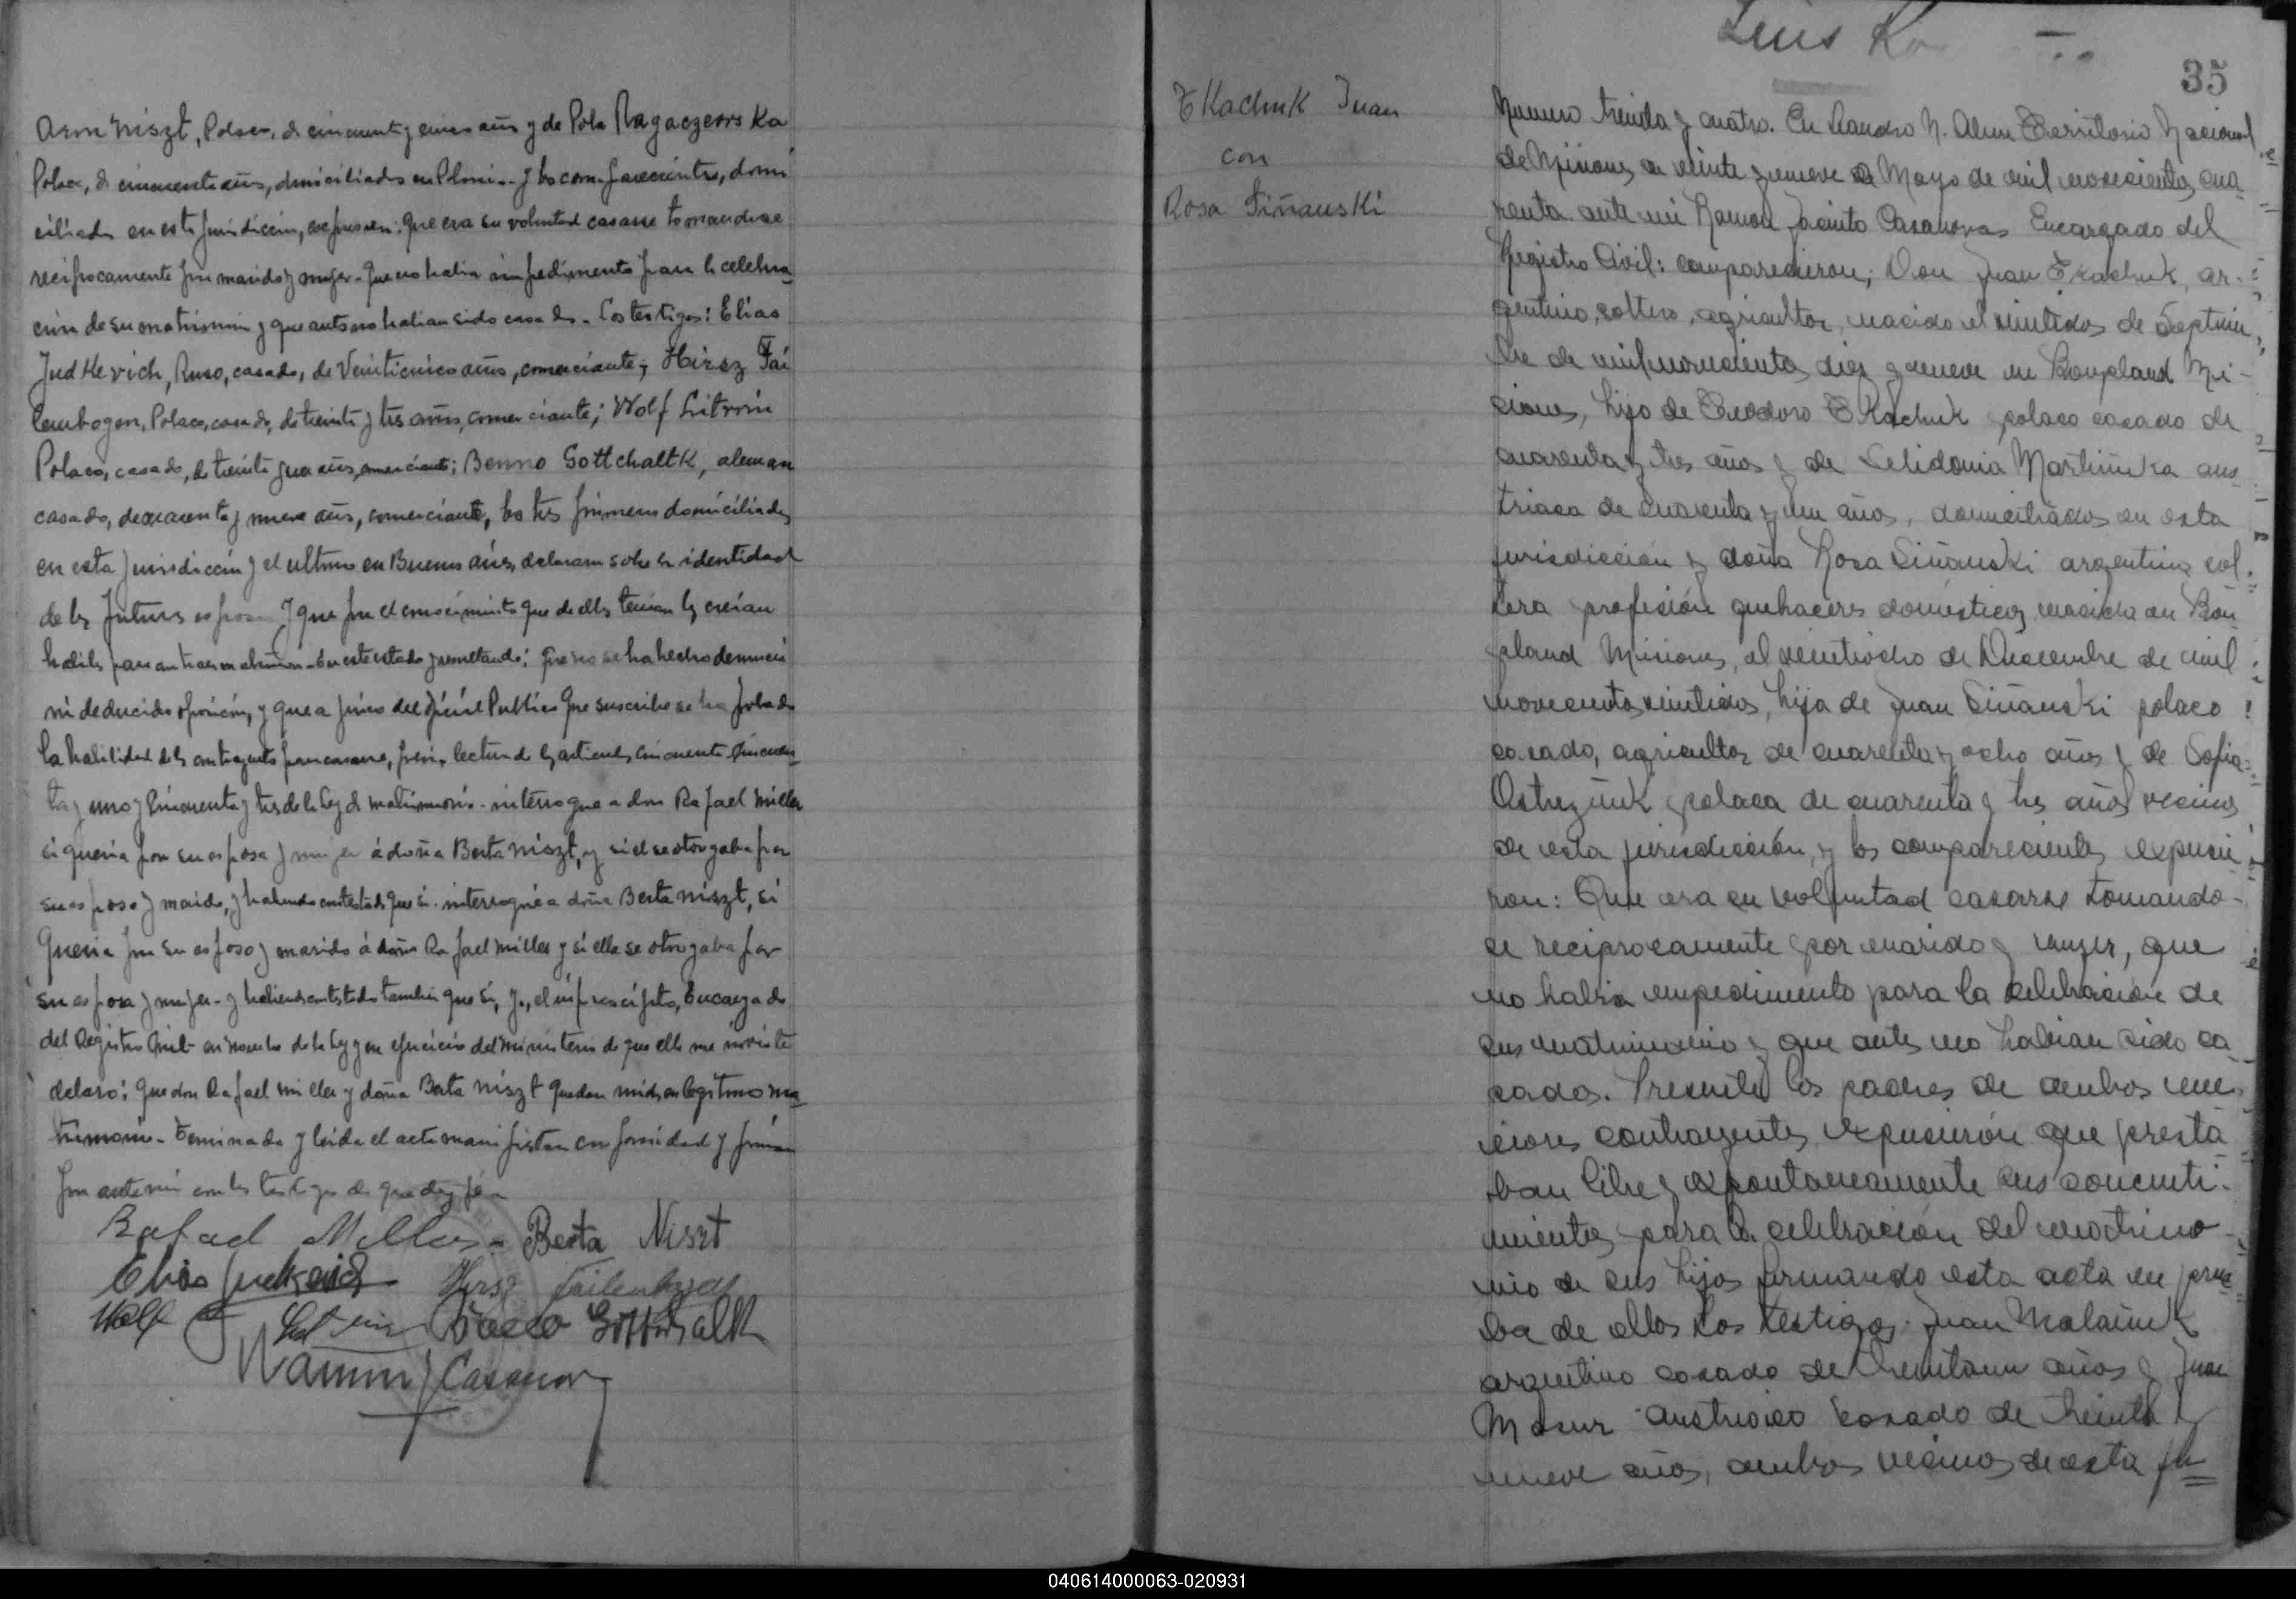 Aron Niszt, Polaco, de cincuenta y cinco años y de Pola Ragaczewska
Polaca, de cincuenta años, domiciliados en Polonia - y los comparecientes, domi
ciliados en esta jurisdicción, expusieron: Que era su voluntad casarse tomandose
reciprocamente por marido y mujer - Que no habia impedimento para la celebra
ción de su matrimonio y que antes no habian sido casados - Los testigos: Elias
Judkevich, Ruso, casado, de Veinticinco años, comerciante; Hirsz Fai
lenbogen, Polaco, casado, de treinta y tres años, comerciante; Wolf Litvin
Polaco, casado, de treinta y un años, comerciante; Benno Gottchaltk, aleman
casado, de cuarenta y nueve años, comerciante, los tres primeros domiciliados
en esta jurisdicción y el ultimo en Buenos aires, declararon sobre la identidad
de los futuros esposos y que por el conocimiento que de ellos tenian los creian
habiles para contraer matrimonio - En este estado y resultando: Que no se ha hecho denuncia
ni deducido oposición, y que a juicio del oficial Publico que suscribe se ha probado
la habilidad de los contrayentes para casarse, previa lectura de los articulos cincuenta cincuen
ta y uno y cincuenta y tres de la ley de matrimonio - interrogue a don Rafael Miller
si queria por su esposa y mujer á doña Berta Niszt, y si el se otorgaba por
su esposo y marido, y habiendo contestado que si - interrogué a doña Berta Niszt, si
Queria por su esposo y marido á don Rafael Miller y si ella se otorgaba por
su esposa y mujer - y habiendo contestado tambien que si, yo, el infrascripto, Encargado
del Registro Civil - en nombre de la ley y en ejercicio del ministerio de que ella me inviste
declaro: que don Rafael Miller y doña Berta Niszt quedan unidos en legitimo ma
trimonio - Terminada y leida el acta manifiestan conformidad y firman
por ante mi con los testigos de que doy fé
Rafael Miller - Berta Niszt
Elias Judkevich Hirsz Failenbogen
Wolf Litvin Benno Gottschalk
Ramon J Casanova
Luis
35
TKachuk Juan
con
Rosa Siñanski
Numero treinta y cuatro. En Leandro N. Alem Territorio Nacional
de Misiones, a veinte y nueve de Mayo de mil novecientos cua
renta ante mi Ramon Jacinto Casanovas Encargado del
Registro Civil: comparecieron; Don Juan TKachuk, ar-
gentino, soltero, agricultor, nacido el veintidos de Septiem
bre de mil novecientos diez y nueve en Bonpland Mi-
siones, hijo de Teodoro TKachuk polaco casado de
cuarenta y tres años y de Celidonia Martiñuka aus
triaca de cuarenta y un años, domiciliados en esta
jurisdicción y doña Rosa Siñanski argentina sol
tera profesión quehaceres domesticos, nacida en Bon
pland Misiones, el veintiocho de Diciembre de mil
novecientos veintidos, hija de Juan Siñanski polaco
casado, agricultor de cuarenta y ocho años y de Sofia
Ostrezñuk polaca de cuarenta y tres años vecinos
de esta jurisdicción, y los comparecientes expusie
ron: Que era su voluntad casarse tomando-
se reciprocamente por marido y mujer, que
no habia empedimento para la celebración de
sus matrimonio y que antes no habian sido ca
sados. Presentes los padres de ambos me-
nores contrayentes, expusieron que presta
ban libre y expontaneamente sus concenti-
mientos para la celebración del matrimo-
nio de sus hijos firmando esta acta en prue
ba de ellos Los testigos: Juan Malañuk
argentino casado de treintaun años y Juan
Masur austriaco casado de treinta y
nueve años, ambos vecinos de esta ju
040614000063-020931